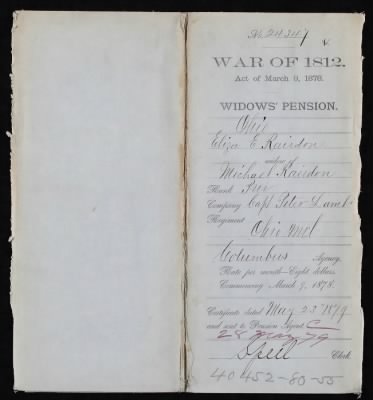 No. 24347
WAR OF 1812.
Act of March 9, 1878.
WIDOWS' PENSION.
Ohio
Eliza E. Rairdon
widow of
Michael Rairdon
Rank
Company Capt Peter Lamb
Regiment
Ohio Mil
Columbus Agency.
Rate per month—Eight dollars.
Commencing March 9, 1878.
Certificate dated May 23 1879
and sent to Pension Agent
28 May 79
Clerk.
40452-80-55